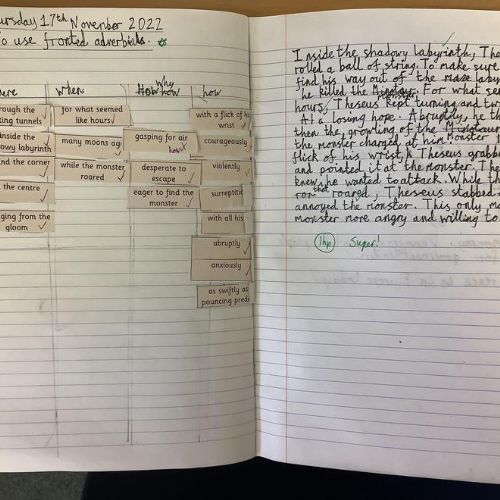 ursday 17th November 2022
o use fronted adverbials.
ere when Why how
rough the
ting tunnels
for what seemed
like hours
with a flick of his
wrist
inside the
owy labyrinth
many moons ag
gasping for air
how
courageously
nd the corner
while the monster
roared
desperate to
escape
violently
the centre
eager to find the
monster
surreptiti
ging from the
gloom
with all his
abruptly
anxiously
as swiftly as
pouncing preda
Inside the shadowy labyrinth, The
rolled a ball of string. To make sure
find his way out of the maze labyr
he killed the monster. For what see
hours, Theseus kept turning and t
losing hope. Abruptly, he th
then the growling of the Minotaur
the monster charged at him. Monster
flick of his wrist, Theseus grabbe
and pointed it at the monster. The
knew he wanted to attack. While th
roared, Theseus stabbed
annoyed the monster. This only m
monster more angry and willing to
1hp Super!